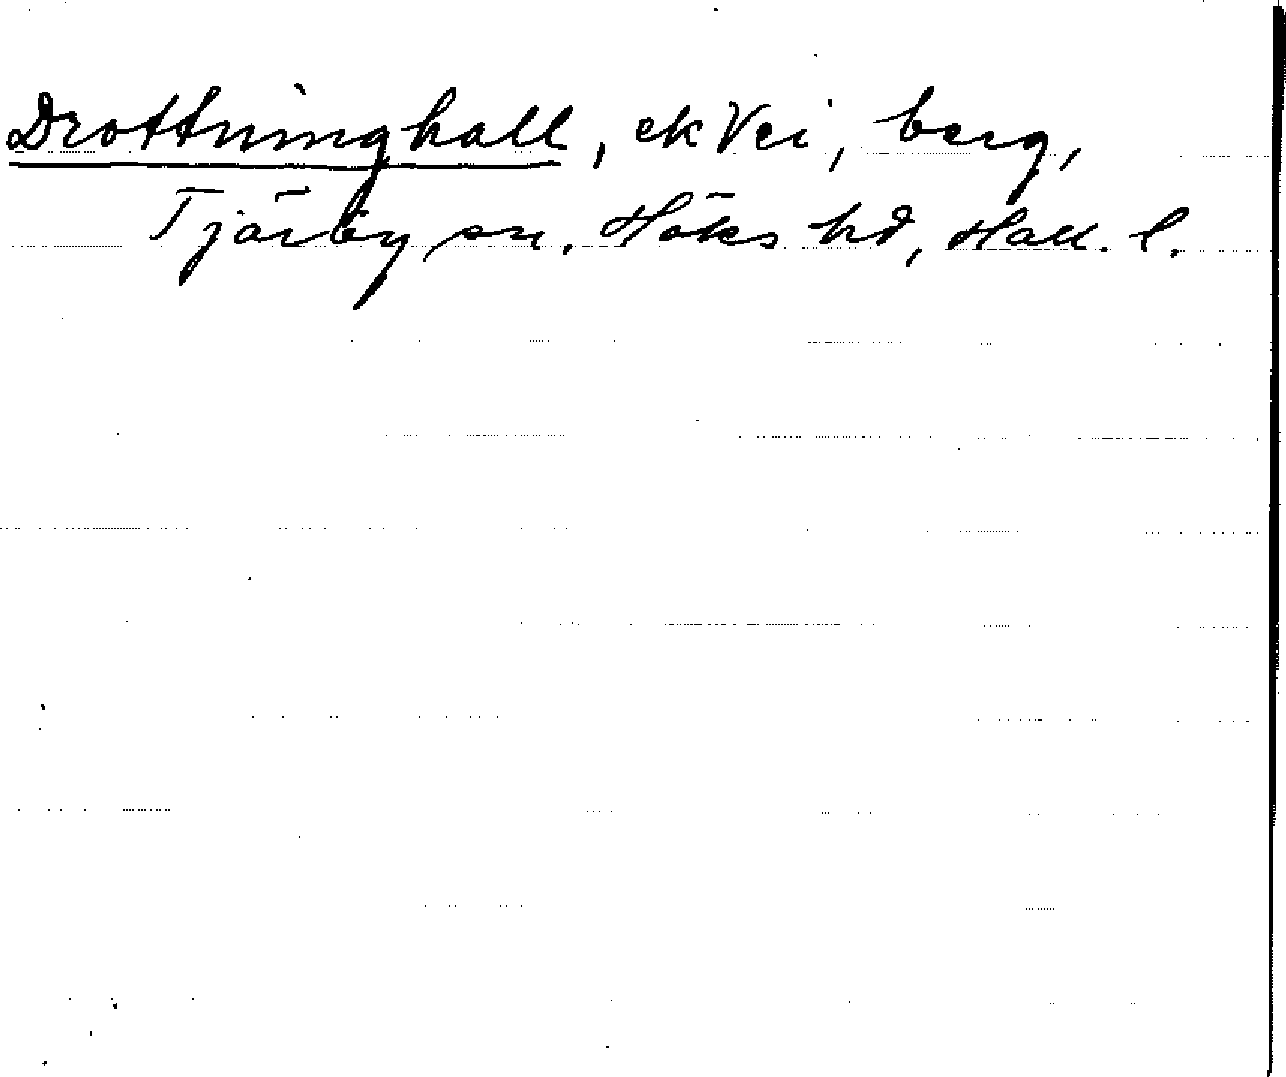 Drottninghall, ek Vei, berg,
Tjärby sn. Höks hd, Hall. l.